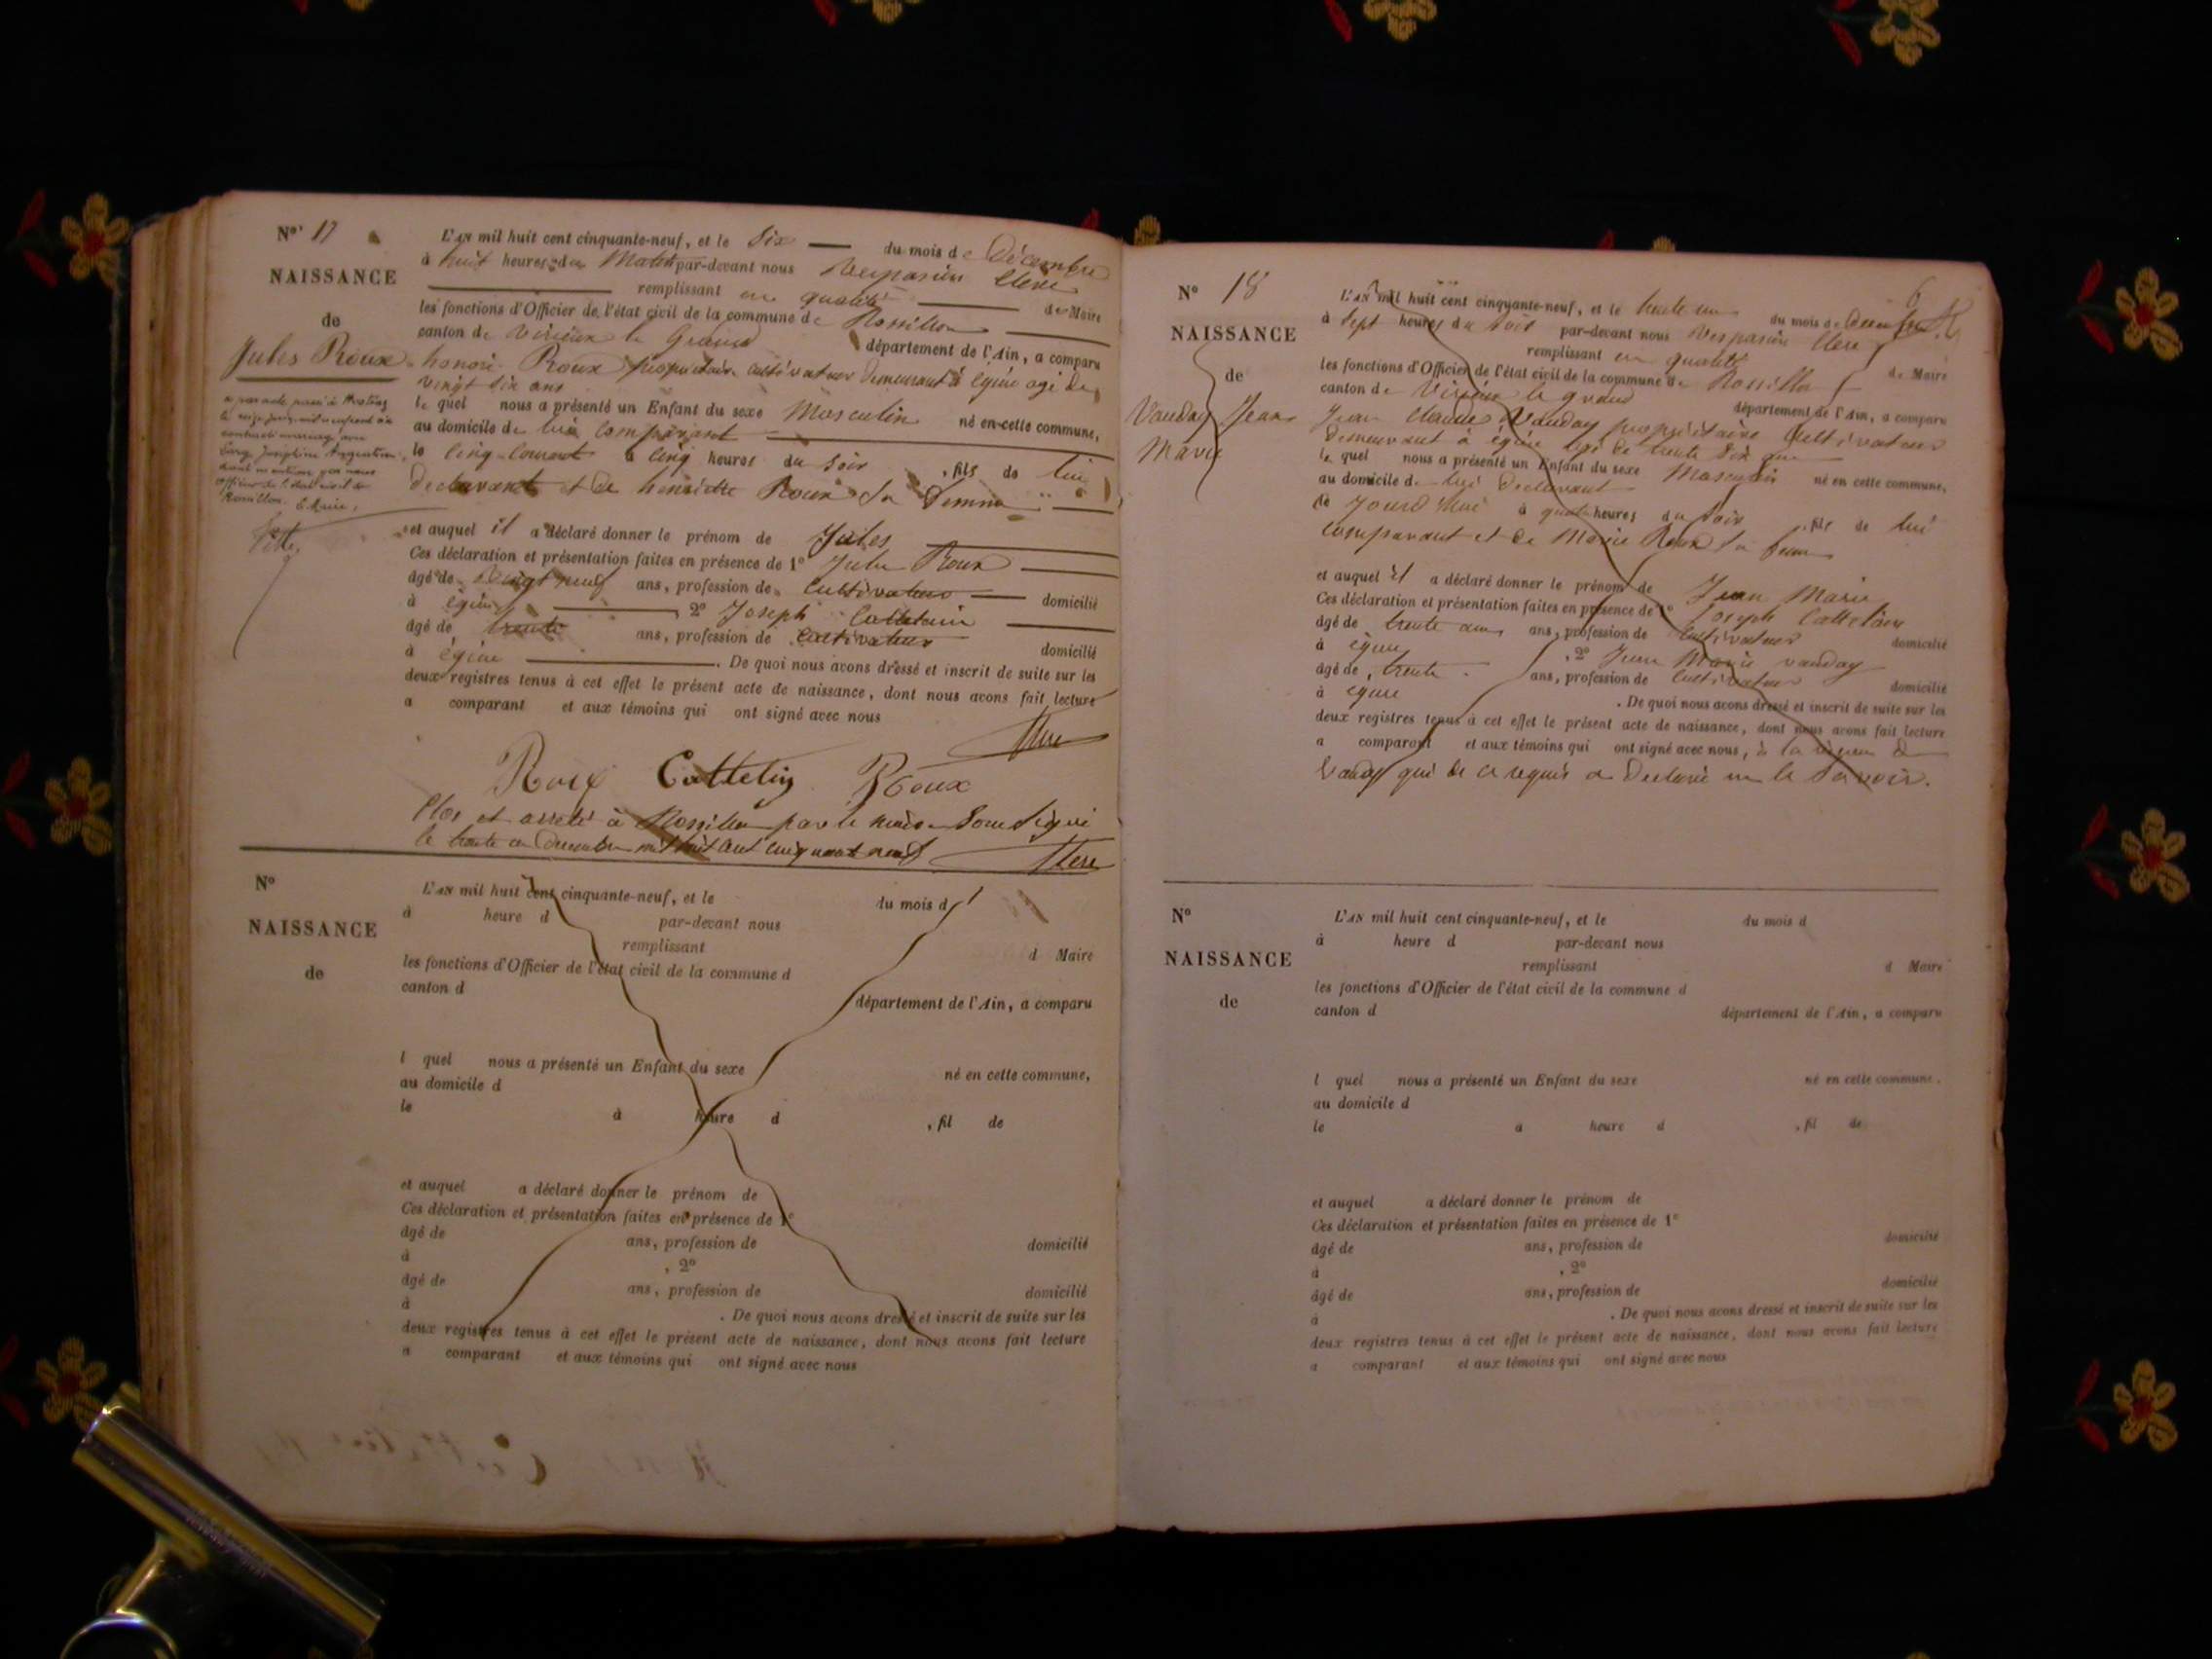 N° 17
NAISSANCE
de
Jules Roux
L'AN mil huit cent cinquante-neuf, et le Six du mois de Décembre
à huit heures du Matin par-devant nous Vespasien Clerc
remplissant en qualité de Maire
les fonctions d'Officier de l'état civil de la commune de Rossillon
canton de Virieux le Grand département de l'Ain, a comparu
honoré Roux propriétaire cultivateur demeurant à égieu agé de
vingt six ans
le quel nous a présenté un Enfant du sexe Masculin né en cette commune,
au domicile de lui comparant
le cinq courant à cinq heures du soir, fils de lui
declarant et de Roux sa femme
et auquel il a déclaré donner le prénom de Jules
Ces déclaration et présentation faites en présence de 1° Roux
âgé de vingt neuf ans, profession de cultivateur domicilié
à égieu, 2° Joseph Cattelin
âgé de trente ans, profession de cultivateur domicilié
à égieu. De quoi nous avons dressé et inscrit de suite sur les
deux registres tenus à cet effet le présent acte de naissance, dont nous avons fait lecture
a comparant et aux témoins qui ont signé avec nous
Clerc
Roux Cattelin Roux
Clos et arreté à Rossillon par le maire soussigné
le trente un Decembre mil huit cent cinquante neuf Clerc
N°
NAISSANCE
de
L'AN mil huit cent cinquante-neuf, et le du mois d
à heure d par-devant nous
remplissant d Maire
les fonctions d'Officier de l'état civil de la commune d
canton d département de l'Ain, a comparu
l quel nous a présenté un Enfant du sexe né en cette commune,
au domicile d
le à heure d, fil de
et auquel a déclaré donner le prénom de
Ces déclaration et présentation faites en présence de 1°
âgé de ans, profession de domicilié
à, 2°
âgé de ans, profession de domicilié
à. De quoi nous avons dressé et inscrit de suite sur les
deux registres tenus à cet effet le présent acte de naissance, dont nous avons fait lecture
a comparant et aux témoins qui ont signé avec nous
6
N° 18
NAISSANCE
de
Vauday Jean
Marie
L'AN mil huit cent cinquante-neuf, et le trente un du mois de Decembre
à sept heures du soir par-devant nous Vespasien Clerc
remplissant en qualité de Maire
les fonctions d'Officier de l'état civil de la commune de Rossillon
canton de Virieux le grand département de l'Ain, a comparu
Jean Claude Vauday propriétaire Cultivateur
demeurant à égieu agé de trente six ans
le quel nous a présenté un Enfant du sexe Masculin né en cette commune,
au domicile de lui declarant
le jourd'hui à quatre heures du soir, fils de lui
comparant et de Marie Roux sa femme
et auquel il a déclaré donner le prénom de Jean Marie
Ces déclaration et présentation faites en présence de 1° Joseph Cattelin
âgé de trente ans ans, profession de Cultivateur domicilié
à égieu, 2° Jean Marie Vauday
âgé de trente ans, profession de Cultivateur domicilié
à égieu. De quoi nous avons dressé et inscrit de suite sur les
deux registres tenus à cet effet le présent acte de naissance, dont nous avons fait lecture
a comparant et aux témoins qui ont signé avec nous, à la de
Vauday qui de ce requis a declaré ne le savoir.
N°
NAISSANCE
de
L'AN mil huit cent cinquante-neuf, et le du mois d
à heure d par-devant nous
remplissant d Maire
les fonctions d'Officier de l'état civil de la commune d
canton d département de l'Ain, a comparu
l quel nous a présenté un Enfant du sexe né en cette commune,
au domicile d
le à heure d, fil de
et auquel a déclaré donner le prénom de
Ces déclaration et présentation faites en présence de 1°
âgé de ans, profession de domicilié
à, 2°
âgé de ans, profession de domicilié
à. De quoi nous avons dressé et inscrit de suite sur les
deux registres tenus à cet effet le présent acte de naissance, dont nous avons fait lecture
a comparant et aux témoins qui ont signé avec nous